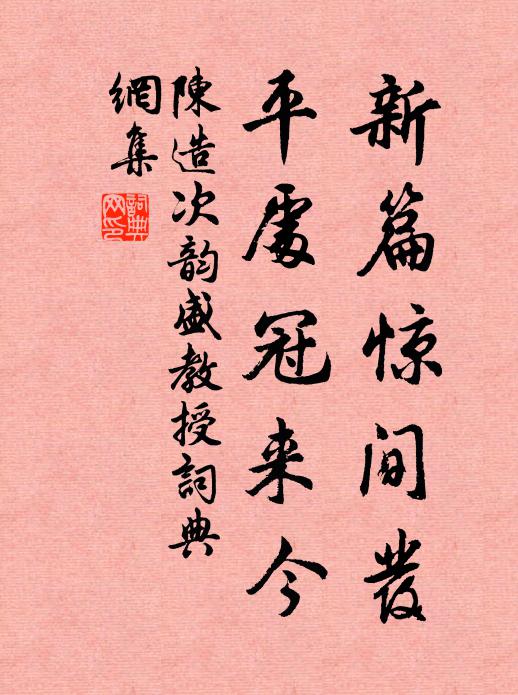 新篇惊间發
平處冠来今
陳造次韵盛教授詞典
網集
詞典
网印